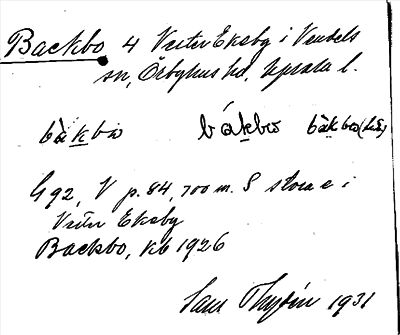 Backbo 4 Väster Ekeby i Vendels
sn, Örbyhus hd, Uppsala l.
bàkbo bákbo bàkbo
G 92, V p. 84, 700 m. S stora e i
Väster Ekeby
Backbo, kb 1926
1931